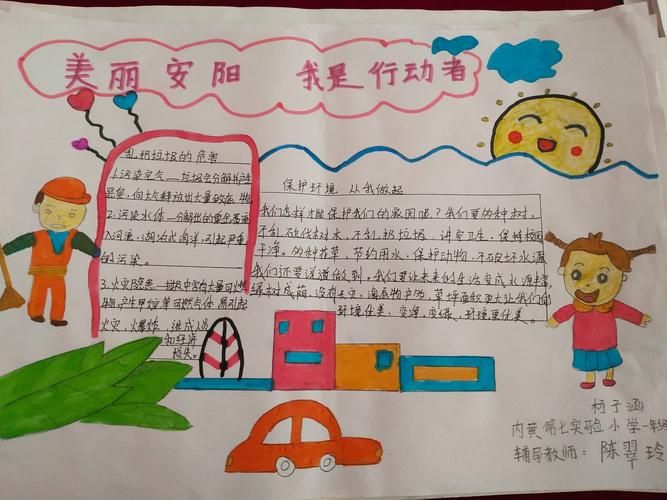 美丽安阳 我是行动者
乱扔垃圾的危害
1.污染空气——垃圾会分解并产生
恶臭,向大气释放出大量致癌、物。
2.污染水体——分解出的重金属流
入河流,湖泊或海洋,引起严重
的污染。
3.火灾隐患——垃圾中含有大量可燃
物,产生甲烷等可燃气体易引起
火灾,火爆炸,造成人员
和经济
损失。
保护环境 从我做起
我们怎样才能保护我们的家园呢?我们要多种树,
不乱砍伐树木,不乱扔垃圾,讲究卫生,保持校园
干净。多种花草,节约用水,保护动物,不破坏水源
我们还要说道做到,我们要让未来的生活变成水源丰富
绿树成荫,没有天灾,海底物产为,草坪面积更大让我们的
环境优美,变净,变绿,环境更优美。
杨子涵
内黄第七实验小学一年级
辅导教师:陈翠玲